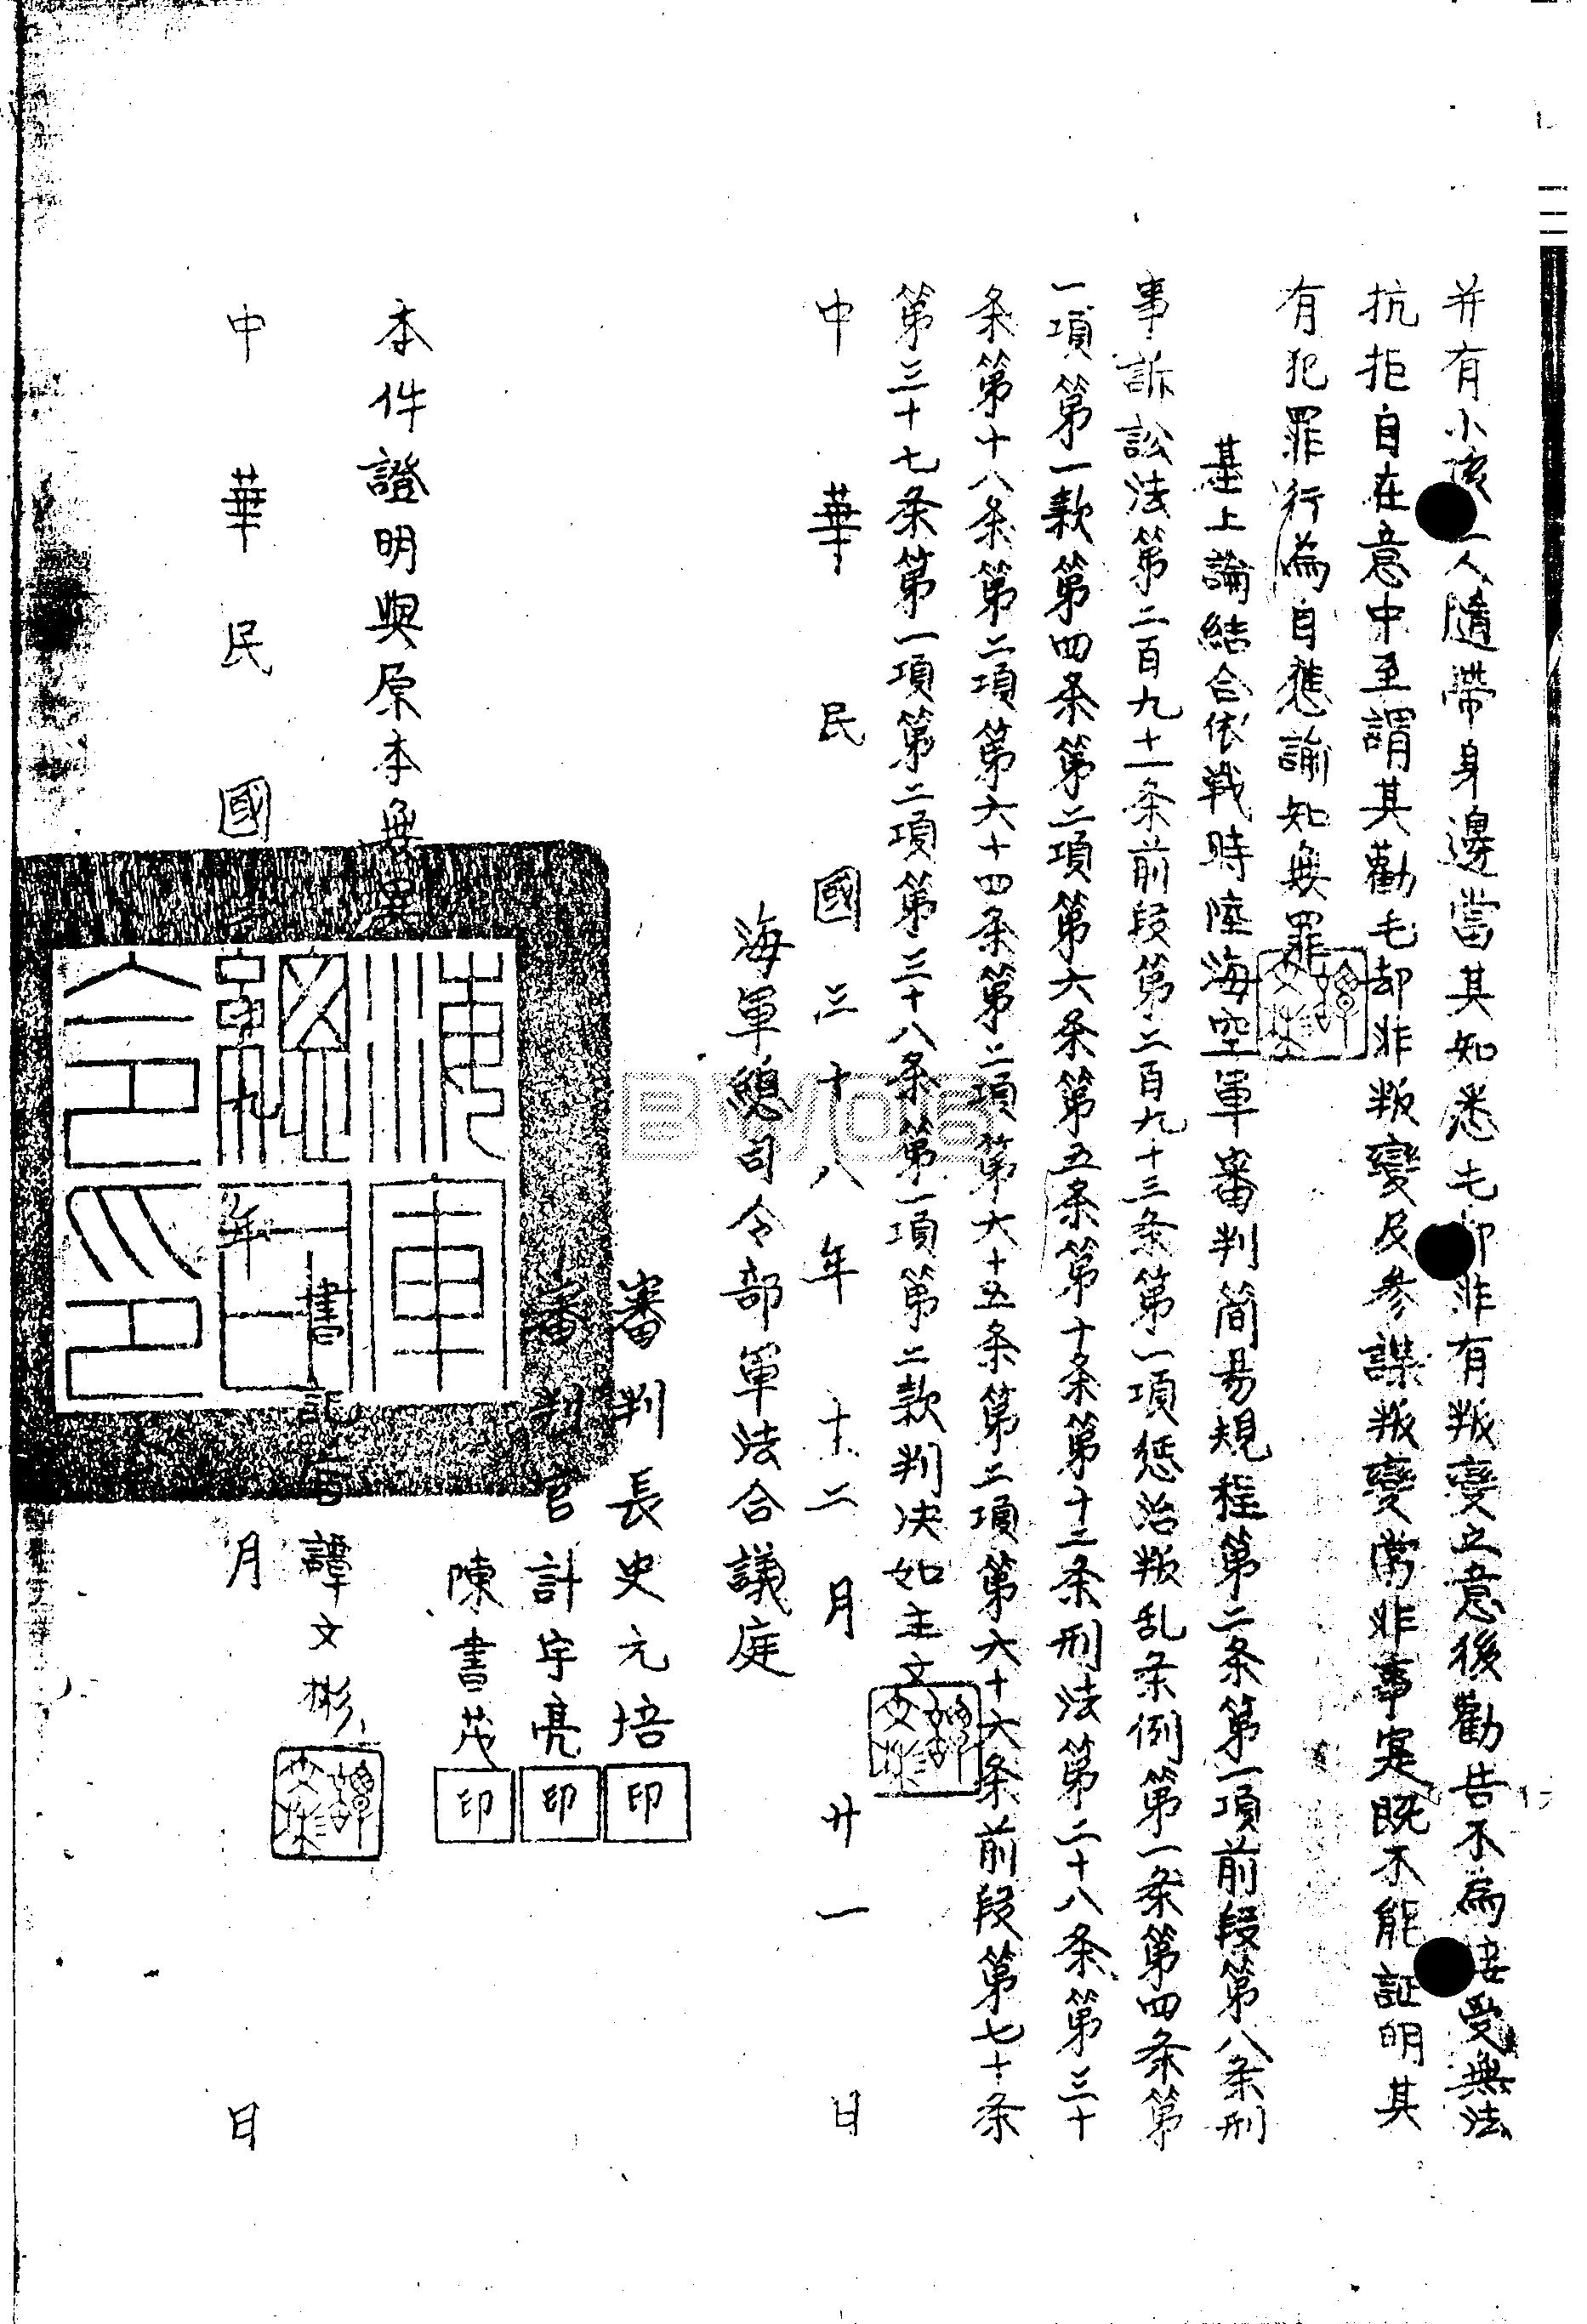 并有小孩一人隨帶身邊當其知悉毛却非有叛變之意後勸告不為接受無法
抗拒自在意中至謂其勸毛却非叛變及參謀叛變當非事寔既不能証明其
有犯罪行為自應諭知無罪
基上論結合依戰時陸海空軍審判簡易規程第二条第一項前段第八条刑
事訴訟法第二百九十一条前段第二百九十三条第一項惩治叛乱条例第一条第四条第
一項第一款第四条第二項第六条第五条第十条第十二条刑法第二十八条第三十
条第十八条第二項第六十四条第二項第六十五条第二項第六十六条前段第七十条
第三十七条第一項第二項第三十八条第一項第二款判决如主文
中華民國三十八年十二月廿一日
海軍總司令部軍法合議庭
審判長史元培印
審判官計宇亮印
陳書茂印
本件證明與原本無異
書記官譚文彬
中華民國三十九年一月 日
海軍總司令部印
譚文彬
譚文彬
譚文彬
BWOB